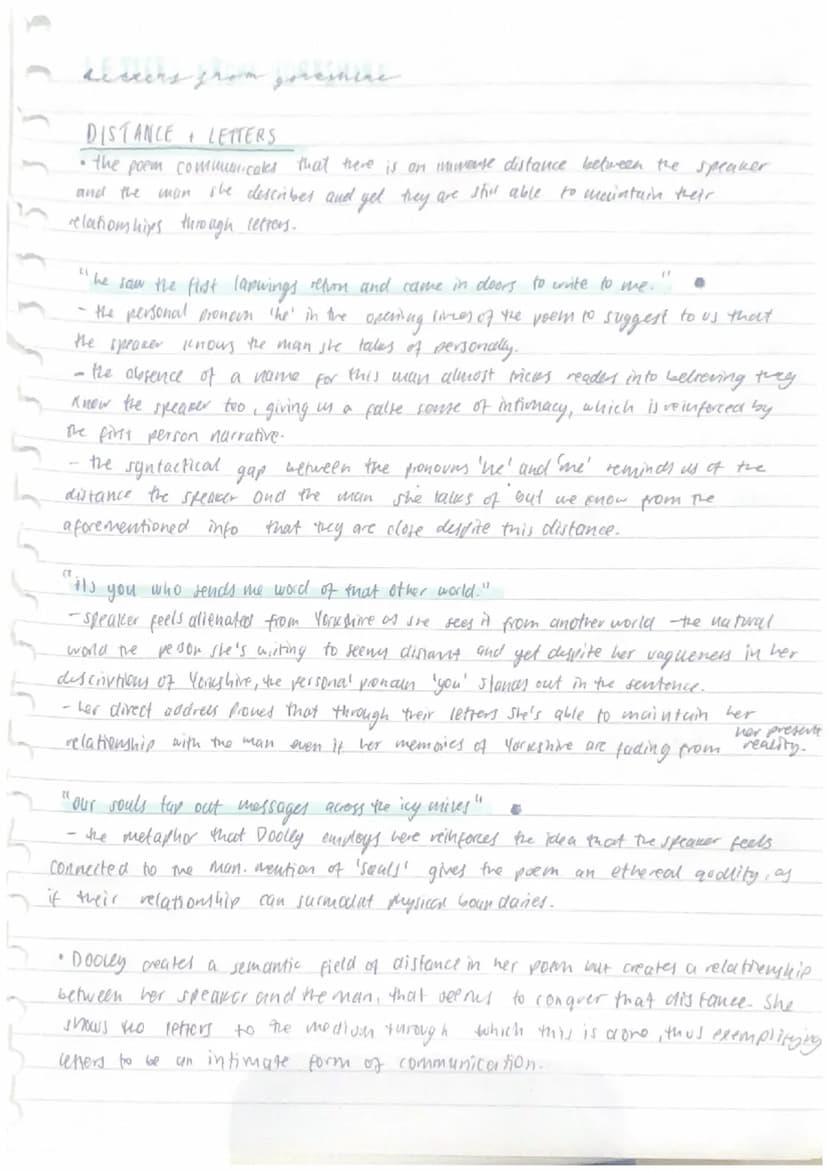 letters from yorkshire
DISTANCE + LETTERS
• the poem communicates that there is an immense distance between the speaker
and the man she describes and yet they are still able to maintain their
relationships through letters.
"he saw the first lapwings return and came in doors to write to me."
- the personal pronoun 'he' in the opening lines of the poem to suggest to us that
the speaker knows the man she talks of personally.
- the absence of a name for this man almost tricks readers into believing they
know the speaker too, giving us a false sense of intimacy, which is reinforced by
the first person narrative.
- the syntactical gap between the pronouns 'he' and 'me' reminds us of the
distance the speaker and the man she talks of but we know from the
aforementioned info that they are close despite this distance.
"its you who sends me word of that other world."
- speaker feels alienated from Yorkshire as she sees it from another world - the natural
world the person she's writing to seems distant and yet despite her vagueness in her
descriptions of Yorkshire, the personal pronoun 'you' stands out in the sentence.
- her direct address proves that through their letters she's able to maintain her
relationship with the man even if her memories of Yorkshire are fading from her present reality.
"our souls tap out messages across the icy miles"
- the metaphor that Dooley employs here reinforces the idea that the speaker feels
connected to the man. mention of 'souls' gives the poem an ethereal quality, as
if their relationship can surmount physical boundaries.
• Dooley creates a semantic field of distance in her poem but creates a relationship
between her speaker and the man, that seems to conquer that distance. She
shows letters to the medium through which this is done, thus exemplifying
letters to be an intimate form of communication.